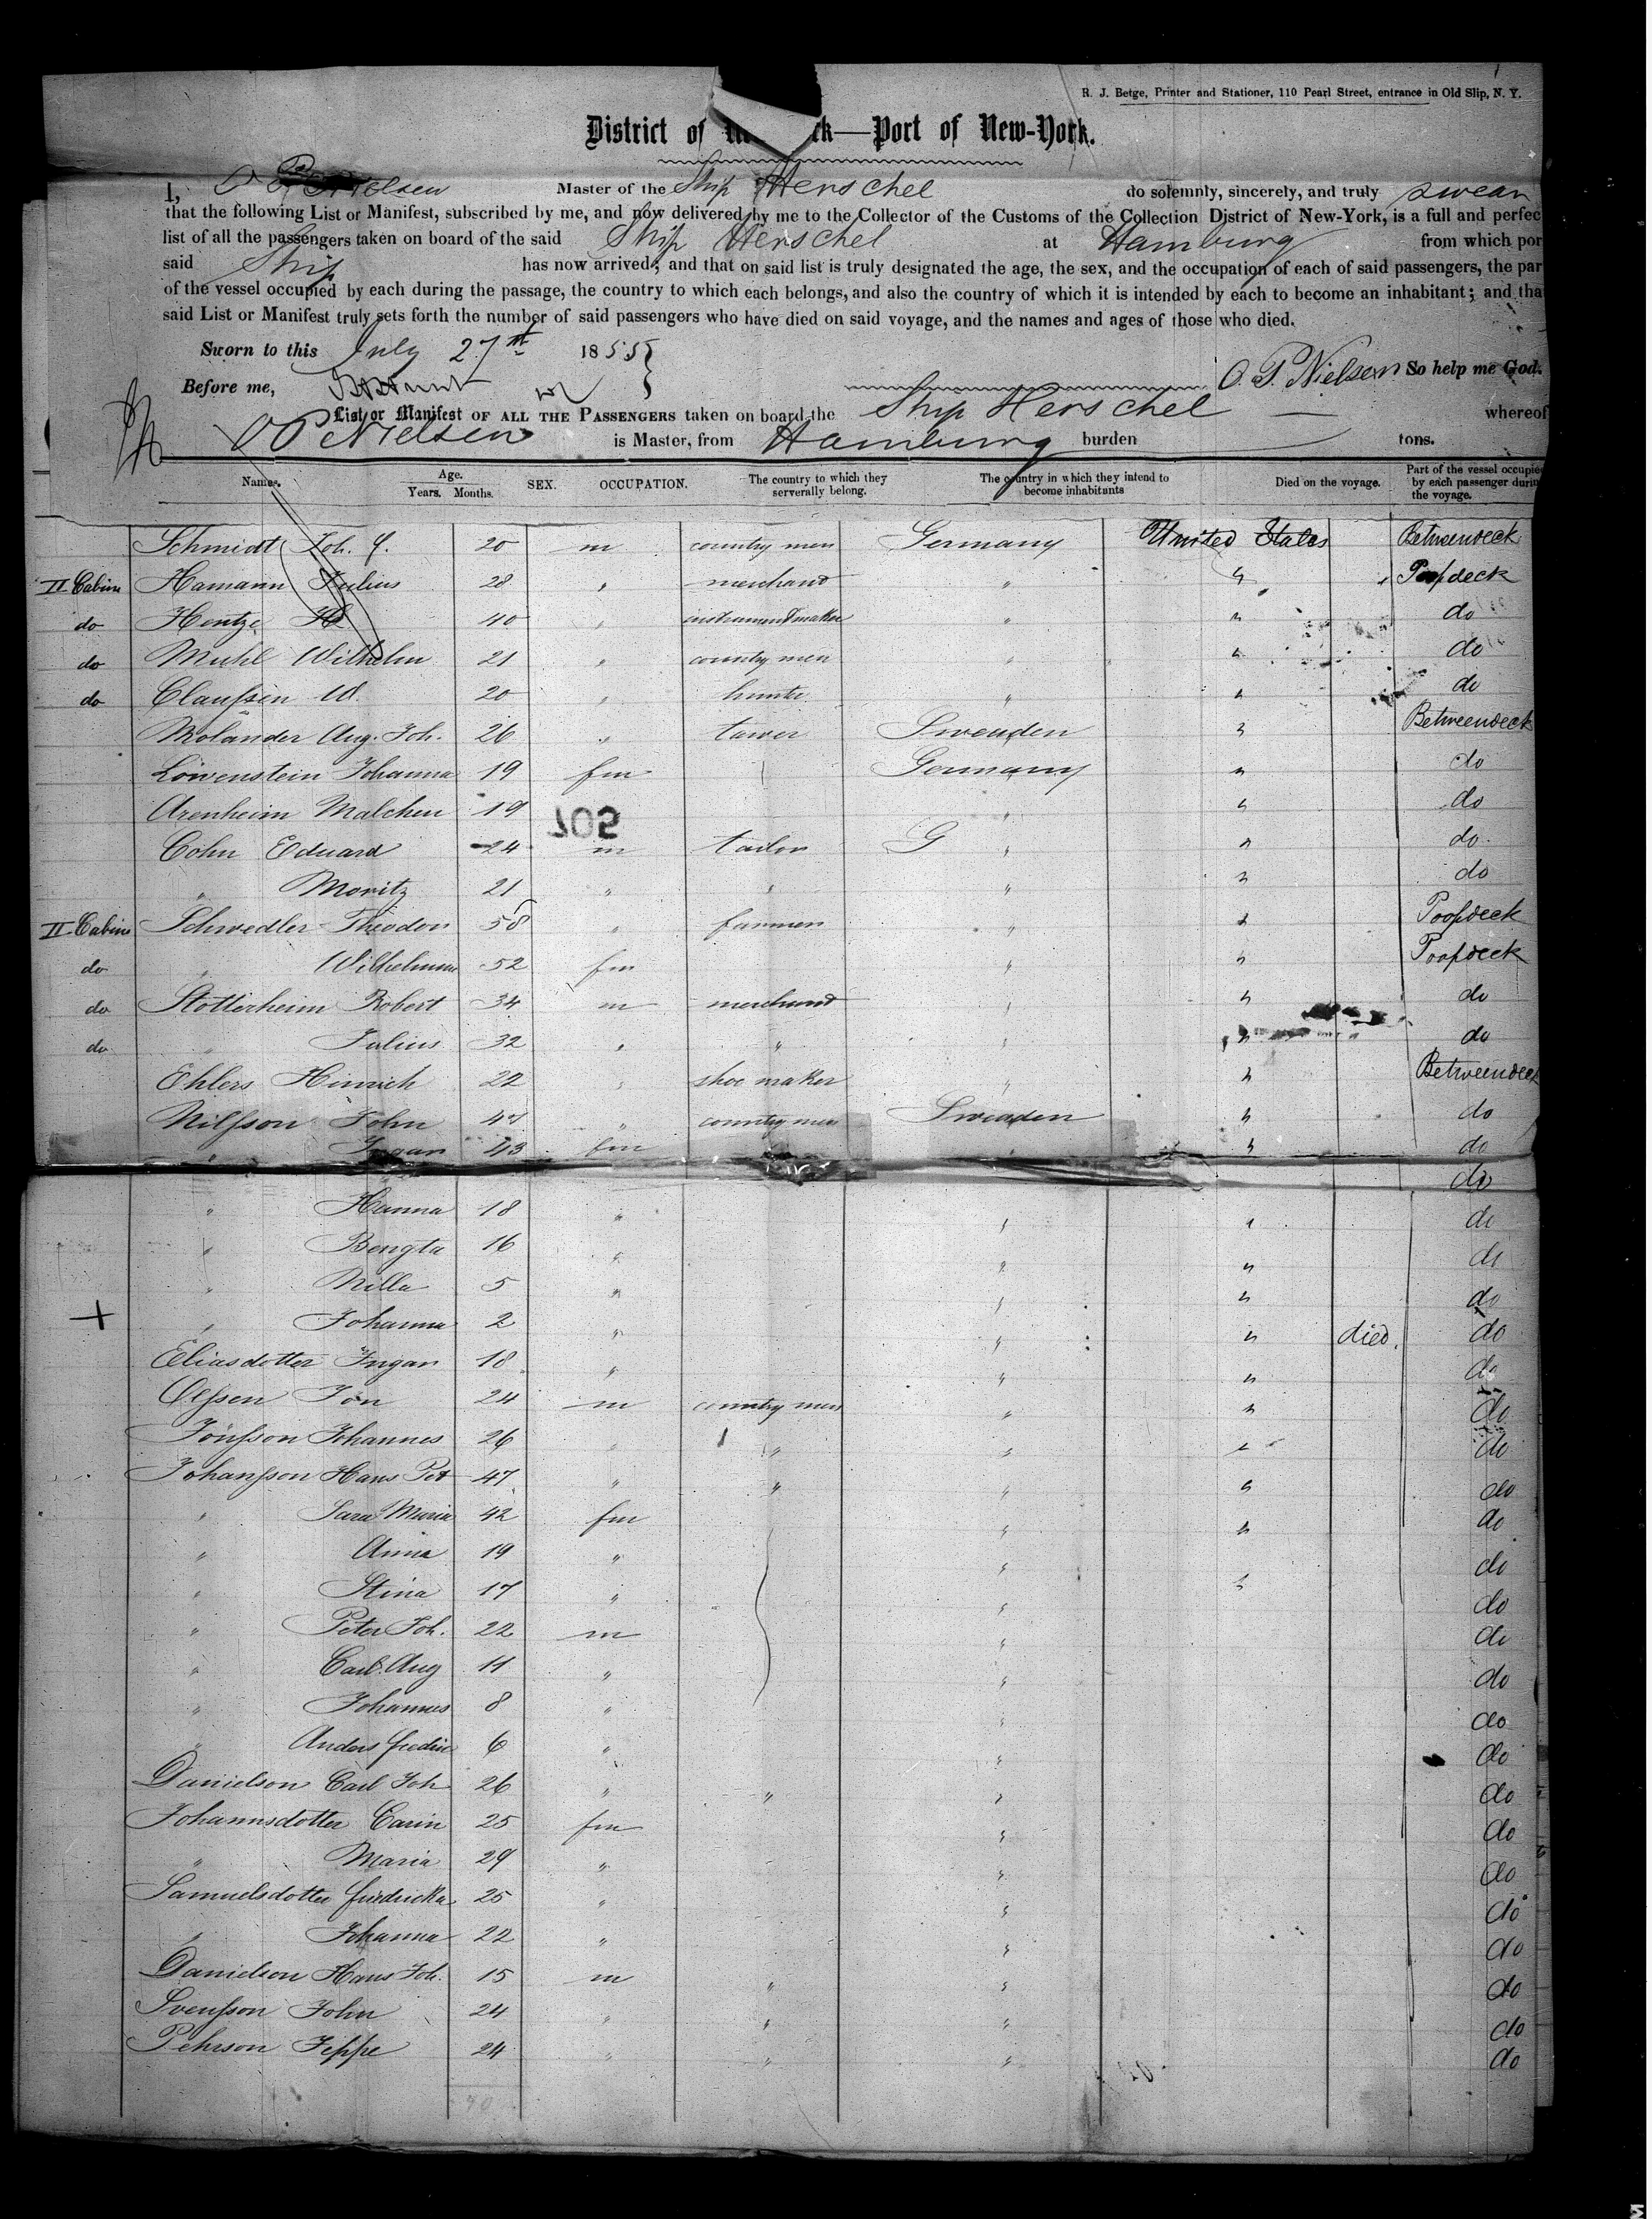 R. J. Betge, Printer and Stationer, 110 Pearl Street, entrance in Old Slip, N. Y.
District of ck—Port of New-York.
I, O P Nielsen Master of the Ship Herschel do solemnly, sincerely, and truly swear
that the following List or Manifest, subscribed by me, and now delivered by me to the Collector of the Customs of the Collection District of New-York, is a full and perfec
list of all the passengers taken on board of the said Ship Herschel at Hamburg from which por
said Ship has now arrived; and that on said list is truly designated the age, the sex, and the occupation of each of said passengers, the par
of the vessel occupied by each during the passage, the country to which each belongs, and also the country of which it is intended by each to become an inhabitant; and tha
said List or Manifest truly sets forth the number of said passengers who have died on said voyage, and the names and ages of those who died.
Sworn to this July 27th 1855
O. P. Nielsen So help me God.
Before me,
List or Manifest OF ALL THE PASSENGERS taken on board the Ship Herschel whereof
O P Nielsen is Master, from Hamburg burden tons.
Names. Age. Years. Months. SEX. OCCUPATION. The country to which they serverally belong. The country in which they intend to become inhabitants Died on the voyage. Part of the vessel occupied by each passenger durin the voyage.
Schmidt Joh. 20 m country men Germany United States Betweendeck
II Cabine Hamann Julius 28 " merchand " " Poopdeck
do Hentze 40 " instrumentmaker " " do
do Muhl Wilhelm 21 " country men " " do
do Claussen W. 20 " hunter " " do
Molander Aug. Joh. 26 " tawer Sweaden " Betweendeck
Löwenstein Johanna 19 fm Germany " do
Arenheim Malchen 19 " " do
705
Cohn Eduard 24 m tailor G " " do
" Moritz 21 " " " " do
II Cabine Schwedler Theodor 58 " farmer " " Poopdeck
do " Wilhelmine 52 fm " " Poopdeck
do Stotterheim Robert 34 m merchand " " do
do " Julius 32 " " " " do
Ehlers Hinrich 22 " shoe maker " " Betweendeck
Nilsson John 47 " country men Sweaden " do
" Ingar 43 fm " " do
do
" Hanna 18 " " " do
" Bengta 16 " " " do
" Nilla 5 " " " do
+ " Johanna 2 " " " died. do
Eliasdotter Ingar 18 " " " do
Olssen Jön 24 m country men " " do
Jönsson Johannes 26 " " " " do
Johansson Hans Pet 47 " " " " do
" Sara Maria 42 fm " " do
" Anna 19 " " do
" Stina 17 " " " do
" Peter Joh. 22 m " do
" Carl. Aug 11 " " do
" Johannes 8 " " do
" Anders fredric 6 " " do
Danielson Carl Joh 26 " " " do
Johannsdotter Carin 25 fm " do
" Maria 29 " " do
Samuelsdotter fredricka 25 " " do
" Johanna 22 " " do
Danielson Hans Joh. 15 m " " do
Svensson John 24 " " " do
Pehrson Jeppe 24 " " " do